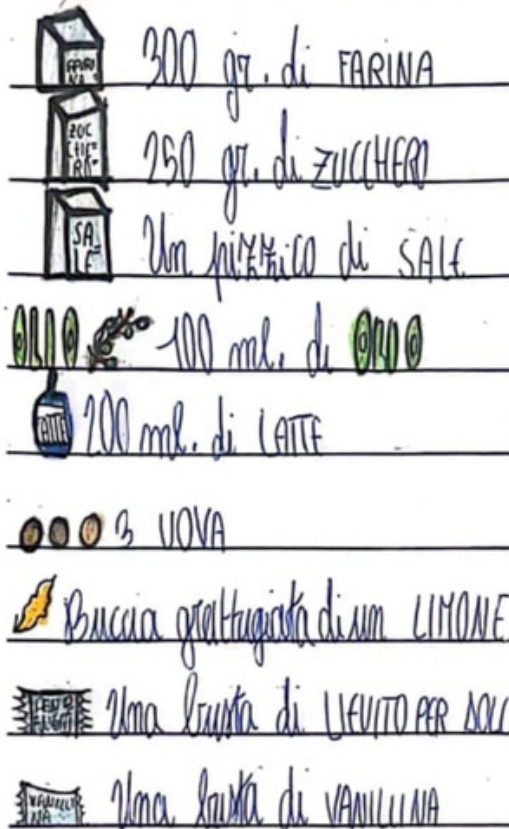 FARINA 300 gr. di FARINA
ZUCCHERO 250 gr. di ZUCCHERO
SALE Un pizzico di SALE
OLIO 100 ml. di OLIO
LATTE 200 ml. di LATTE
3 UOVA
Buccia grattugiata di un LIMONE
Una busta di LIEVITO PER DOLC
VANILLINA Una busta di VANILLINA